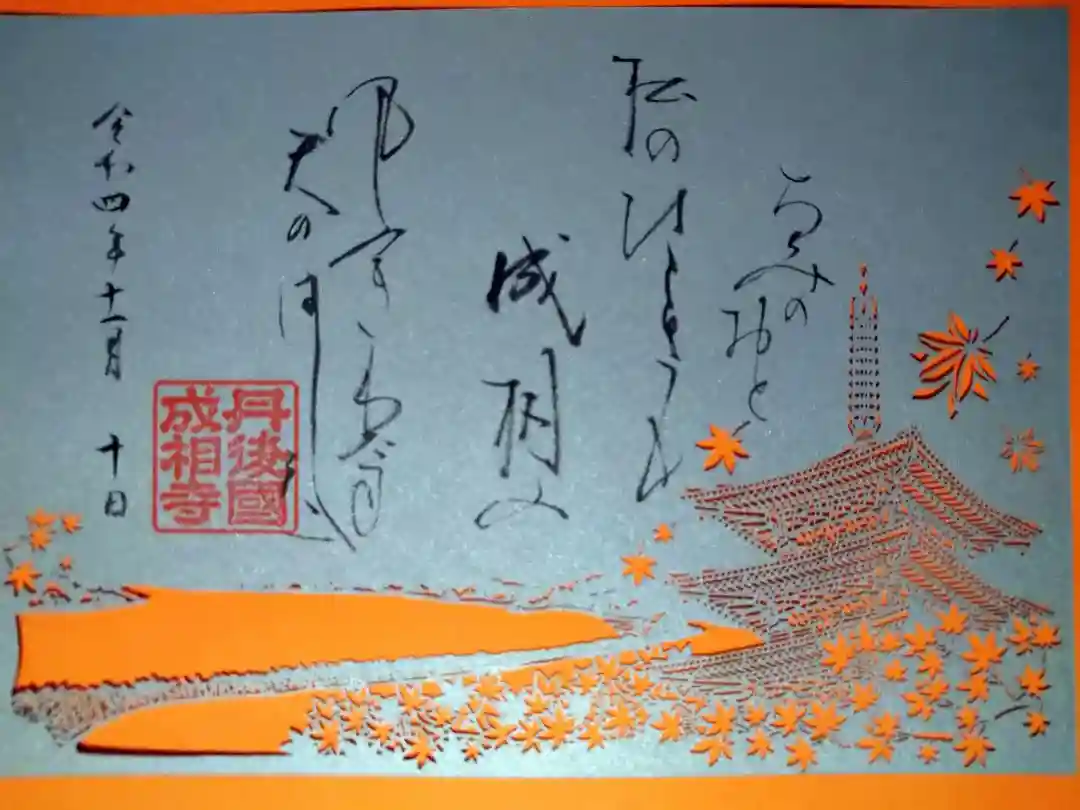 なみのおと
松のひゝきも
成相の
風ふきわたす
天のはし
令和四年十一月 十日
丹後國
成相寺